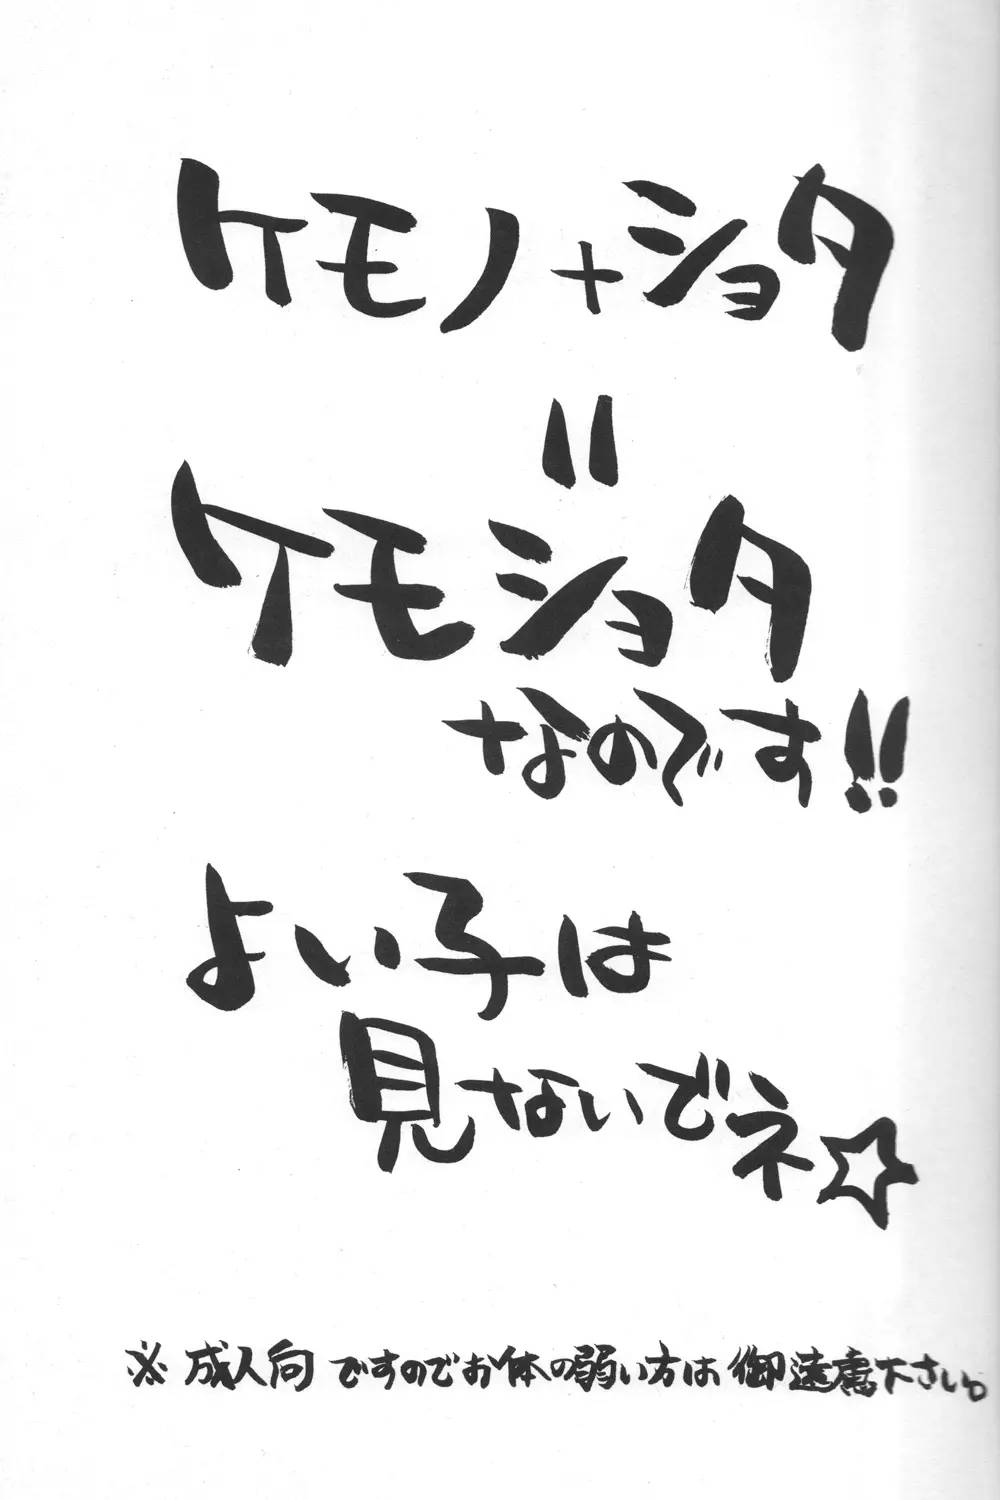 ケモノ+ショタ
=
ケモショタ
なのです!!
よい子は
見ないでネ☆
※成人向ですのでお体の弱い方は御遠慮下さい。